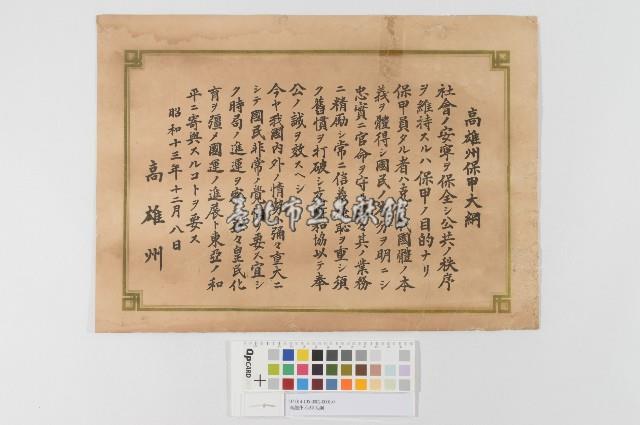 高雄州保甲大綱
社會ノ安寧ヲ保全シ公共ノ秩序
ヲ維持スルハ保甲ノ目的ナリ
保甲員タル者ハ克ク我國體ノ本
義ヲ體得シ國民ノ分ヲ明ニシ
忠實ニ官命ヲ守リ各々其ノ業務
ニ精勵シ常ニ信義廉恥ヲ重シ須
ク舊慣ヲ打破シ交隣和協以テ奉
公ノ誠ヲ效スヘシ
今ヤ我國內外ノ情勢彌々重大ニ
シテ國民非常ノ覺悟ヲ要ス宜シ
ク時局ノ進運ヲ々皇民化
育ヲ彊メ國運ノ進展ト東亞ノ和
平ニ寄與スルコトヲ要ス
昭和十三年十二月八日
高雄州
臺北市立文獻館
QPCARD